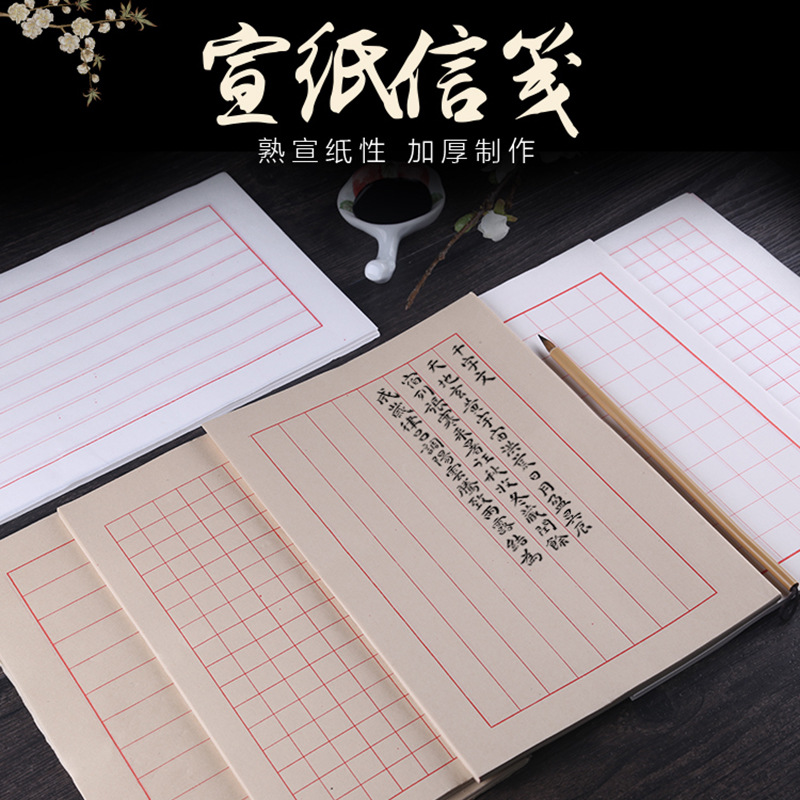 宣纸信笺
熟宣纸性 加厚制作
千字文
天地玄黄宇宙洪荒日月盈昃辰
宿列張寒来暑往秋收冬藏閏餘
成歲律吕調陽雲騰致雨露結為